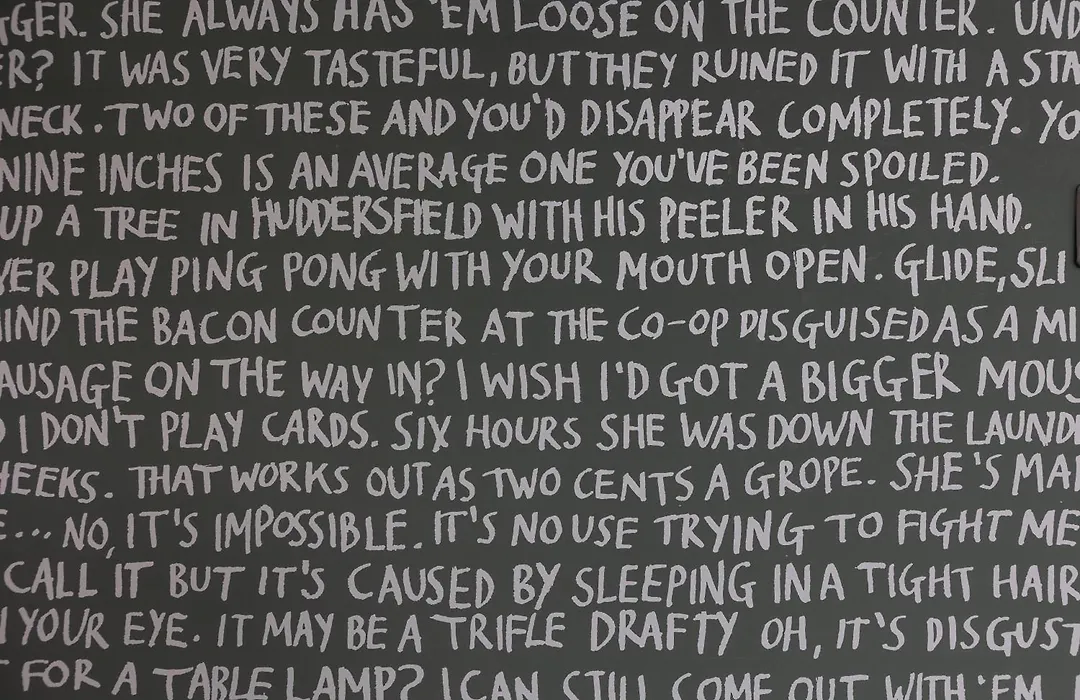 SHE ALWAYS HAS 'EM LOOSE ON THE COUNTER.
IT WAS VERY TASTEFUL, BUT THEY RUINED IT WITH A
NECK. TWO OF THESE AND YOU'D DISAPPEAR COMPLETELY.
NINE INCHES IS AN AVERAGE ONE YOU'VE BEEN SPOILED.
UP A TREE IN HUDDERSFIELD WITH HIS PEELER IN HIS HAND.
PLAY PING PONG WITH YOUR MOUTH OPEN. GLIDE,
THE BACON COUNTER AT THE CO-OP DISGUISED AS A
ON THE WAY IN? I WISH I'D GOT A BIGGER
I DON'T PLAY CARDS. SIX HOURS SHE WAS DOWN THE
THAT WORKS OUT AS TWO CENTS A GROPE. SHE'S
... NO, IT'S IMPOSSIBLE. IT'S NO USE TRYING TO FIGHT ME
CALL IT BUT IT'S CAUSED BY SLEEPING IN A TIGHT HAIR
YOUR EYE. IT MAY BE A TRIFLE DRAFTY OH, IT'S
FOR A TABLE LAMP? I CAN STILL COME OUT WITH 'EM